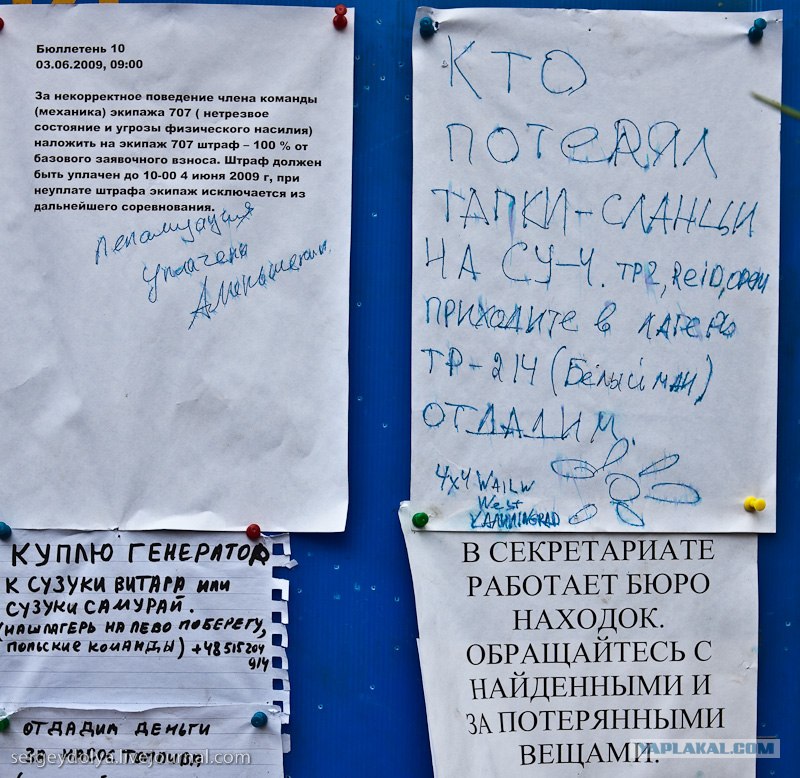 Бюллетень 10
03.06.2009, 09:00
За некорректное поведение члена команды
(механика) экипажа 707 ( нетрезвое
состояние и угрозы физического насилия)
наложить на экипаж 707 штраф – 100 % от
базового заявочного взноса. Штраф должен
быть уплачен до 10-00 4 июня 2009 г, при
неуплате штрафа экипаж исключается из
дальнейшего соревнования.
пенализация
уплачена
КТО
ПОТЕРЯЛ
ТАПКИ-СЛАНЦЫ
НА СУ-4. TP2, ReiD,
ПРИХОДИТЕ В ЛАГЕРЬ
ТР-214 (Белый МАН)
ОТДАДИМ.
4x4
West
KALININGRAD
КУПЛЮ ГЕНЕРАТОР
К СУЗУКИ ВИТАРА ИЛИ
СУЗУКИ САМУРАЙ.
(НАШ ЛАГЕРЬ НА ЛЕВО ПОБЕРЕГУ,
ПОЛЬСКИЕ КОМАНДЫ) +48 515 204
914
ОТДАДИМ ДЕНЬГИ
ЗА
sergeydolya.livejournal.com
В СЕКРЕТАРИАТЕ
РАБОТАЕТ БЮРО
НАХОДОК.
ОБРАЩАЙТЕСЬ С
НАЙДЕННЫМИ И
ЗА ПОТЕРЯННЫМИ
ВЕЩАМИ.
YAPLAKAL.COM